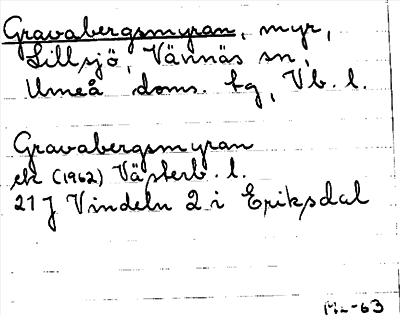 Gravabergsmyran, myr,
Lillsjö, Vännäs sn,
Umeå doms. tg, Vb. l.
Gravabergsmyran
ek (1962) Västerb. l.
21 J Vindeln 2 i Eriksdal
ML-63